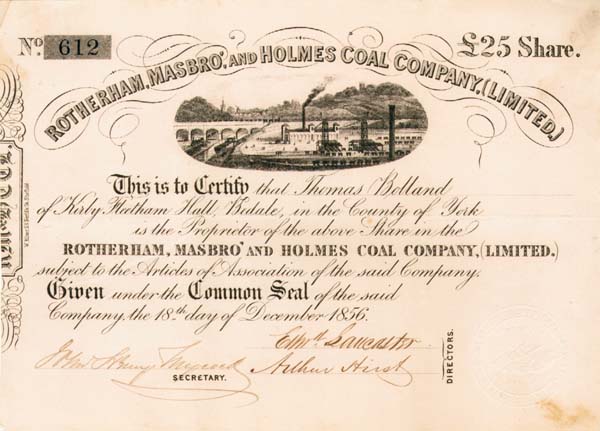 No. 612
£25 Share.
ROTHERHAM, MASBRO', AND HOLMES COAL COMPANY, (LIMITED.)
This is to Certify that Thomas Bolland
of Kirby Fleetham Hall, Bedale, in the County of York
is the Proprietor of the above Share in the
ROTHERHAM, MASBRO' AND HOLMES COAL COMPANY, (LIMITED.)
subject to the Articles of Association of the said Company.
Given under the Common Seal of the said
Company, the 18th day of December 1856.
Edwd. Lancaster
Arthur Hirst
DIRECTORS.
John Henry
SECRETARY.